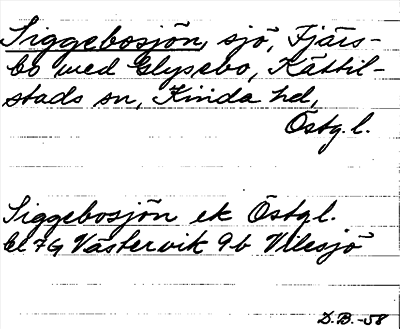 Siggebosjön, sjö, Fjärs-
bo med Glysebo, Kättil-
stads sn, Kinda hd,
Östg. l.
Siggebosjön ek Östgl.
bl 79 Västervik 9b Vilesjö
D.B.-58